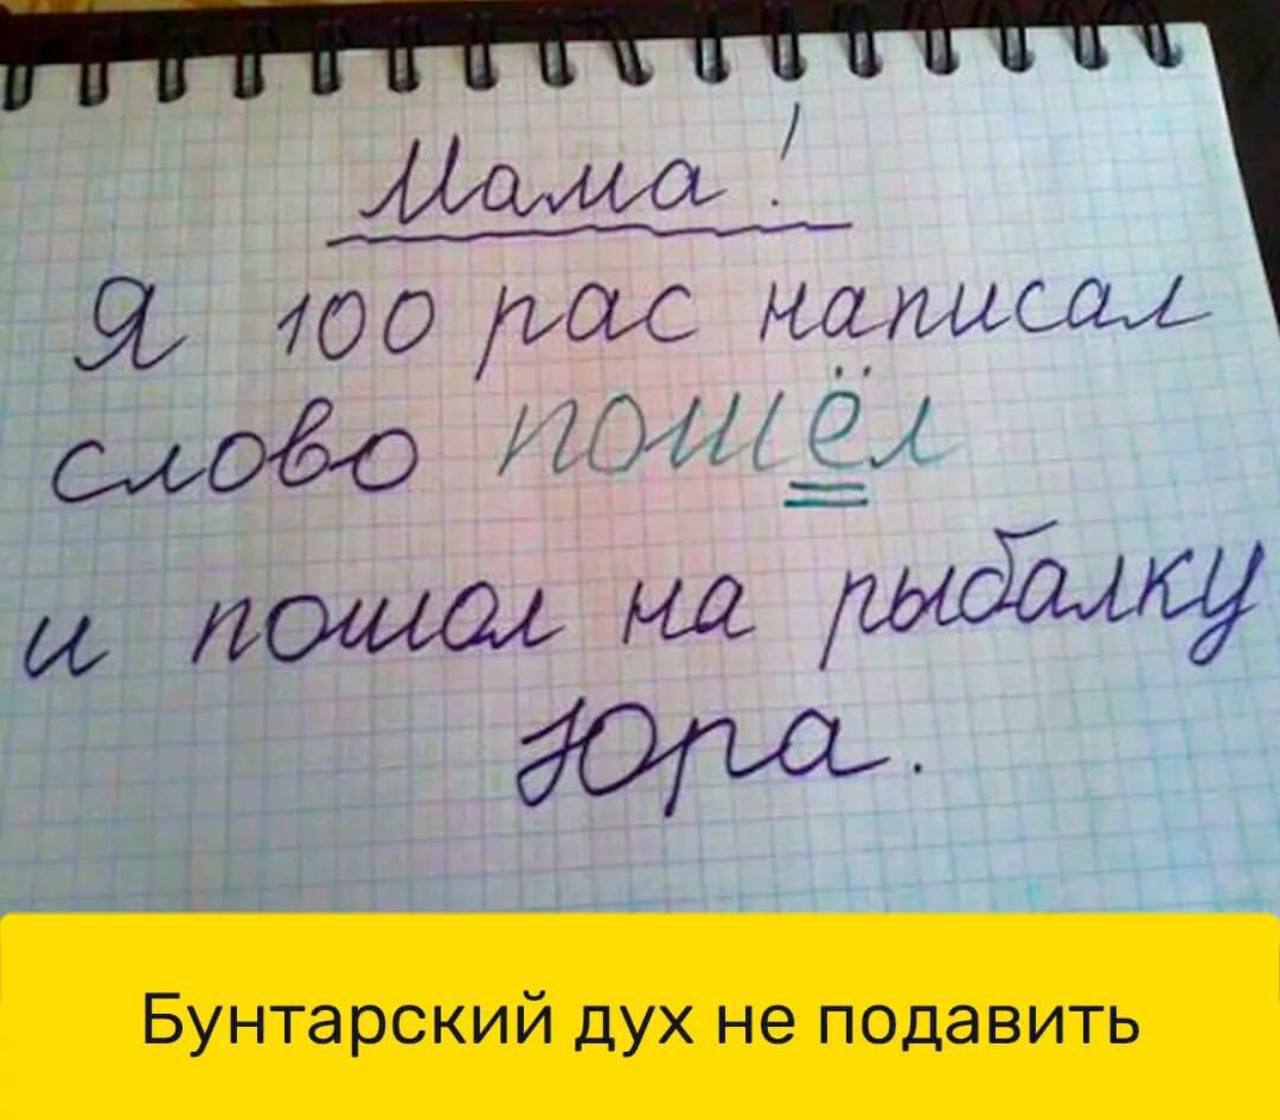 Мама!
Я 100 рас написал
слово пошёл
и пошол на рыбалку
Юра.
Бунтарский дух не подавить